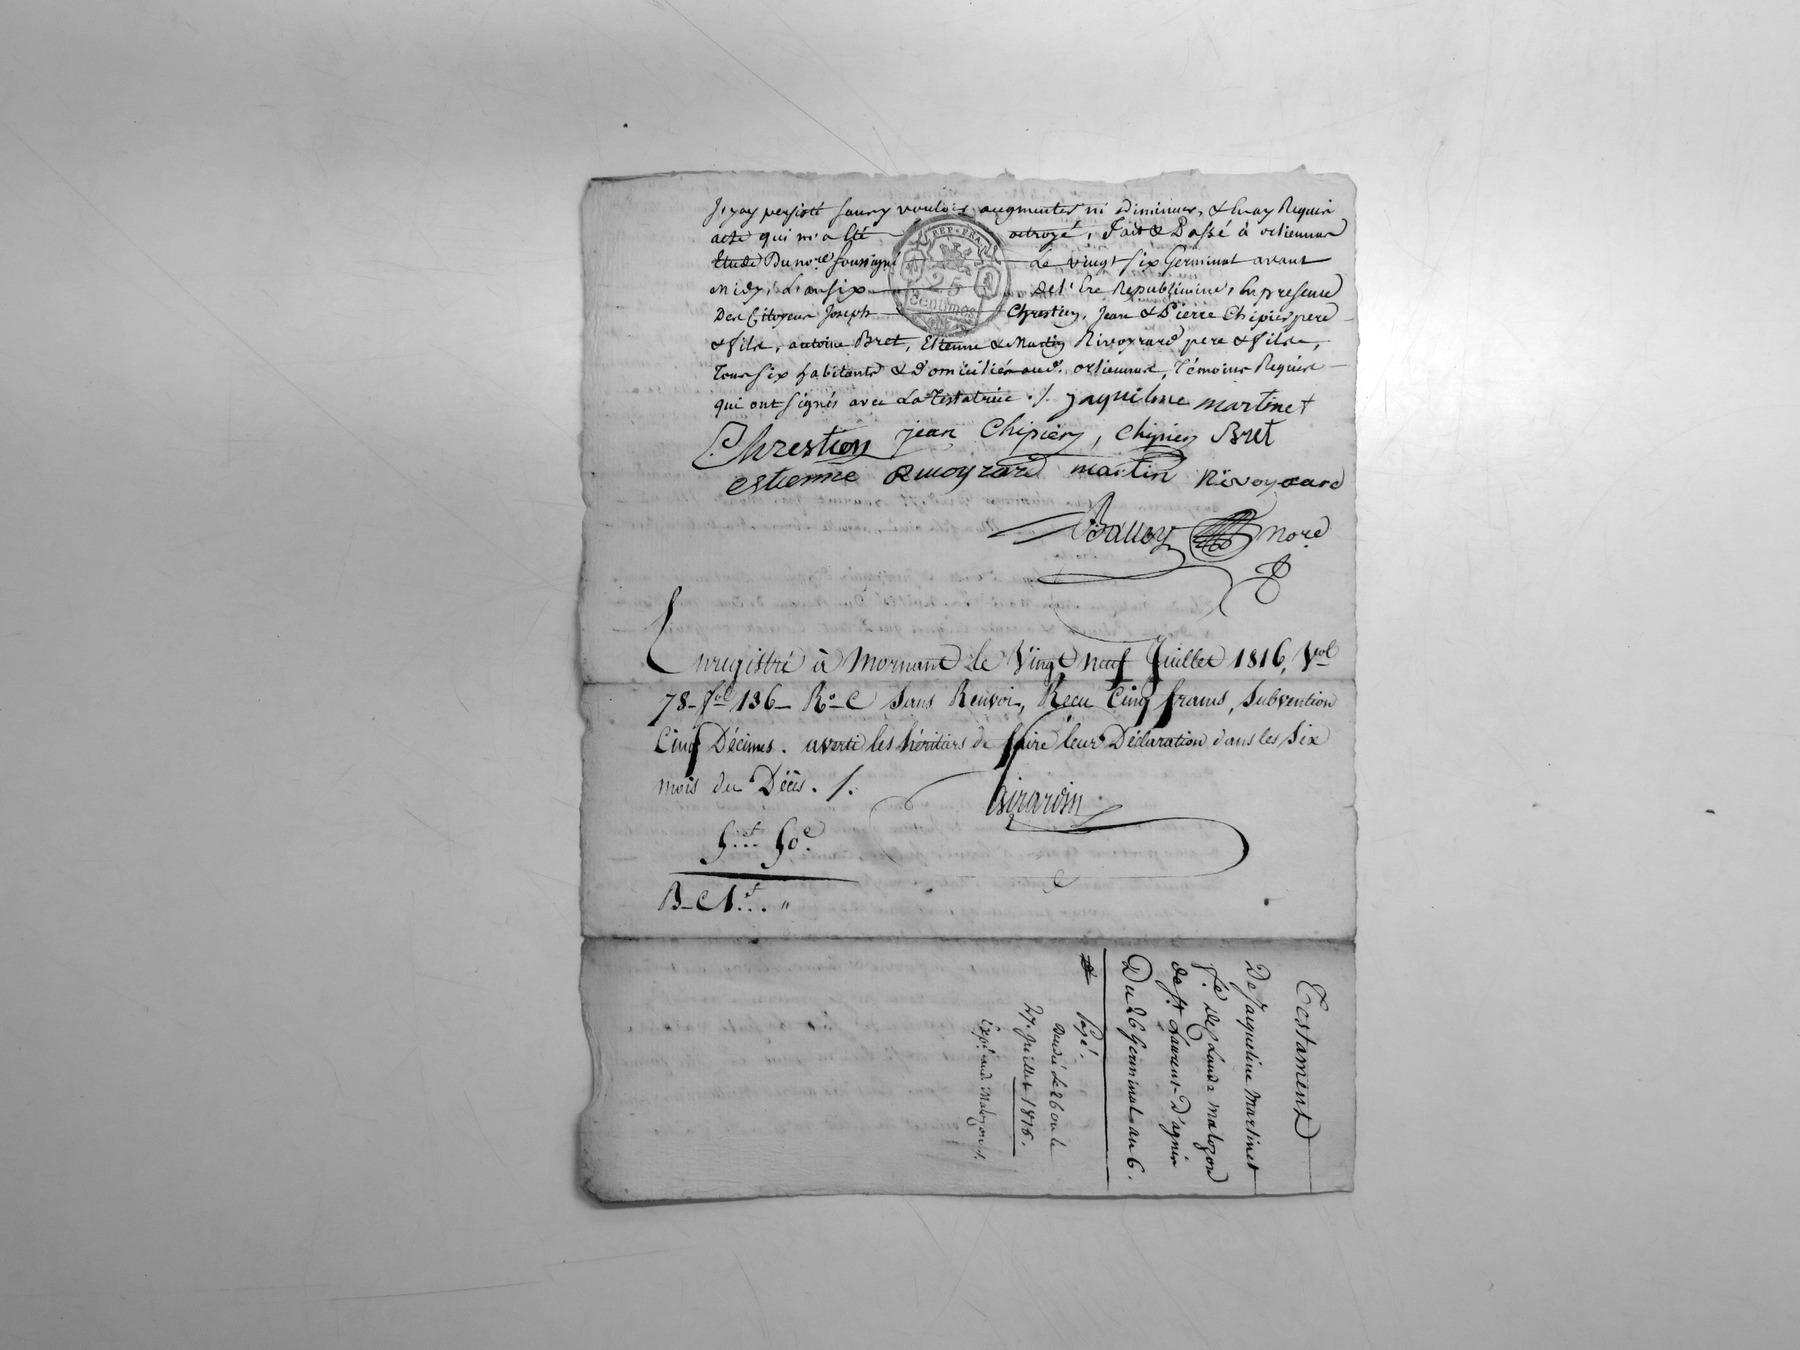 J'y ay persisté sans y vouloir augmenter ni diminuer, & en ay Requis
acte qui m'a été octroyé, Fait & Passé à orliennas
Etude Du no.re soussigné Le vingt six Germinal avant
midy, L'an six De l'Ere Republicaine, En presence
Des Citoyens Joseph Chrestien, Jean & Pierre Chipier pere
& fils, antoine Bret, Estienne & Martin Rivoyrard pere & fils,
Tous six habitants & domiciliés aud. orlienas, Témoins Requis
qui ont signés avec La Testatrice ./. jaquilme martinet
REP. FRA.
25
Centimes
Chrestien jean Chipier, chipier Bret
estienne Rivoyrard martin Rivoyrard
Balley Nore
Enregistré à Mornant Le Vingt neuf Juillet 1816, Vol
78 fol 136 Ro C Sans Renvoi, Recu Cinq francs, Subvention
Cinq Décimes. averti les héritiers de faire leur Déclaration dans les Six
mois du Décès. /.
Girardin
5f... 50c
Testament
De Jaqueline Martinet
fe. de Claude Malozon
de St. Laurent D'agnir
Du 26 Germinal an 6.
Expé.
27. Juillet 1816.